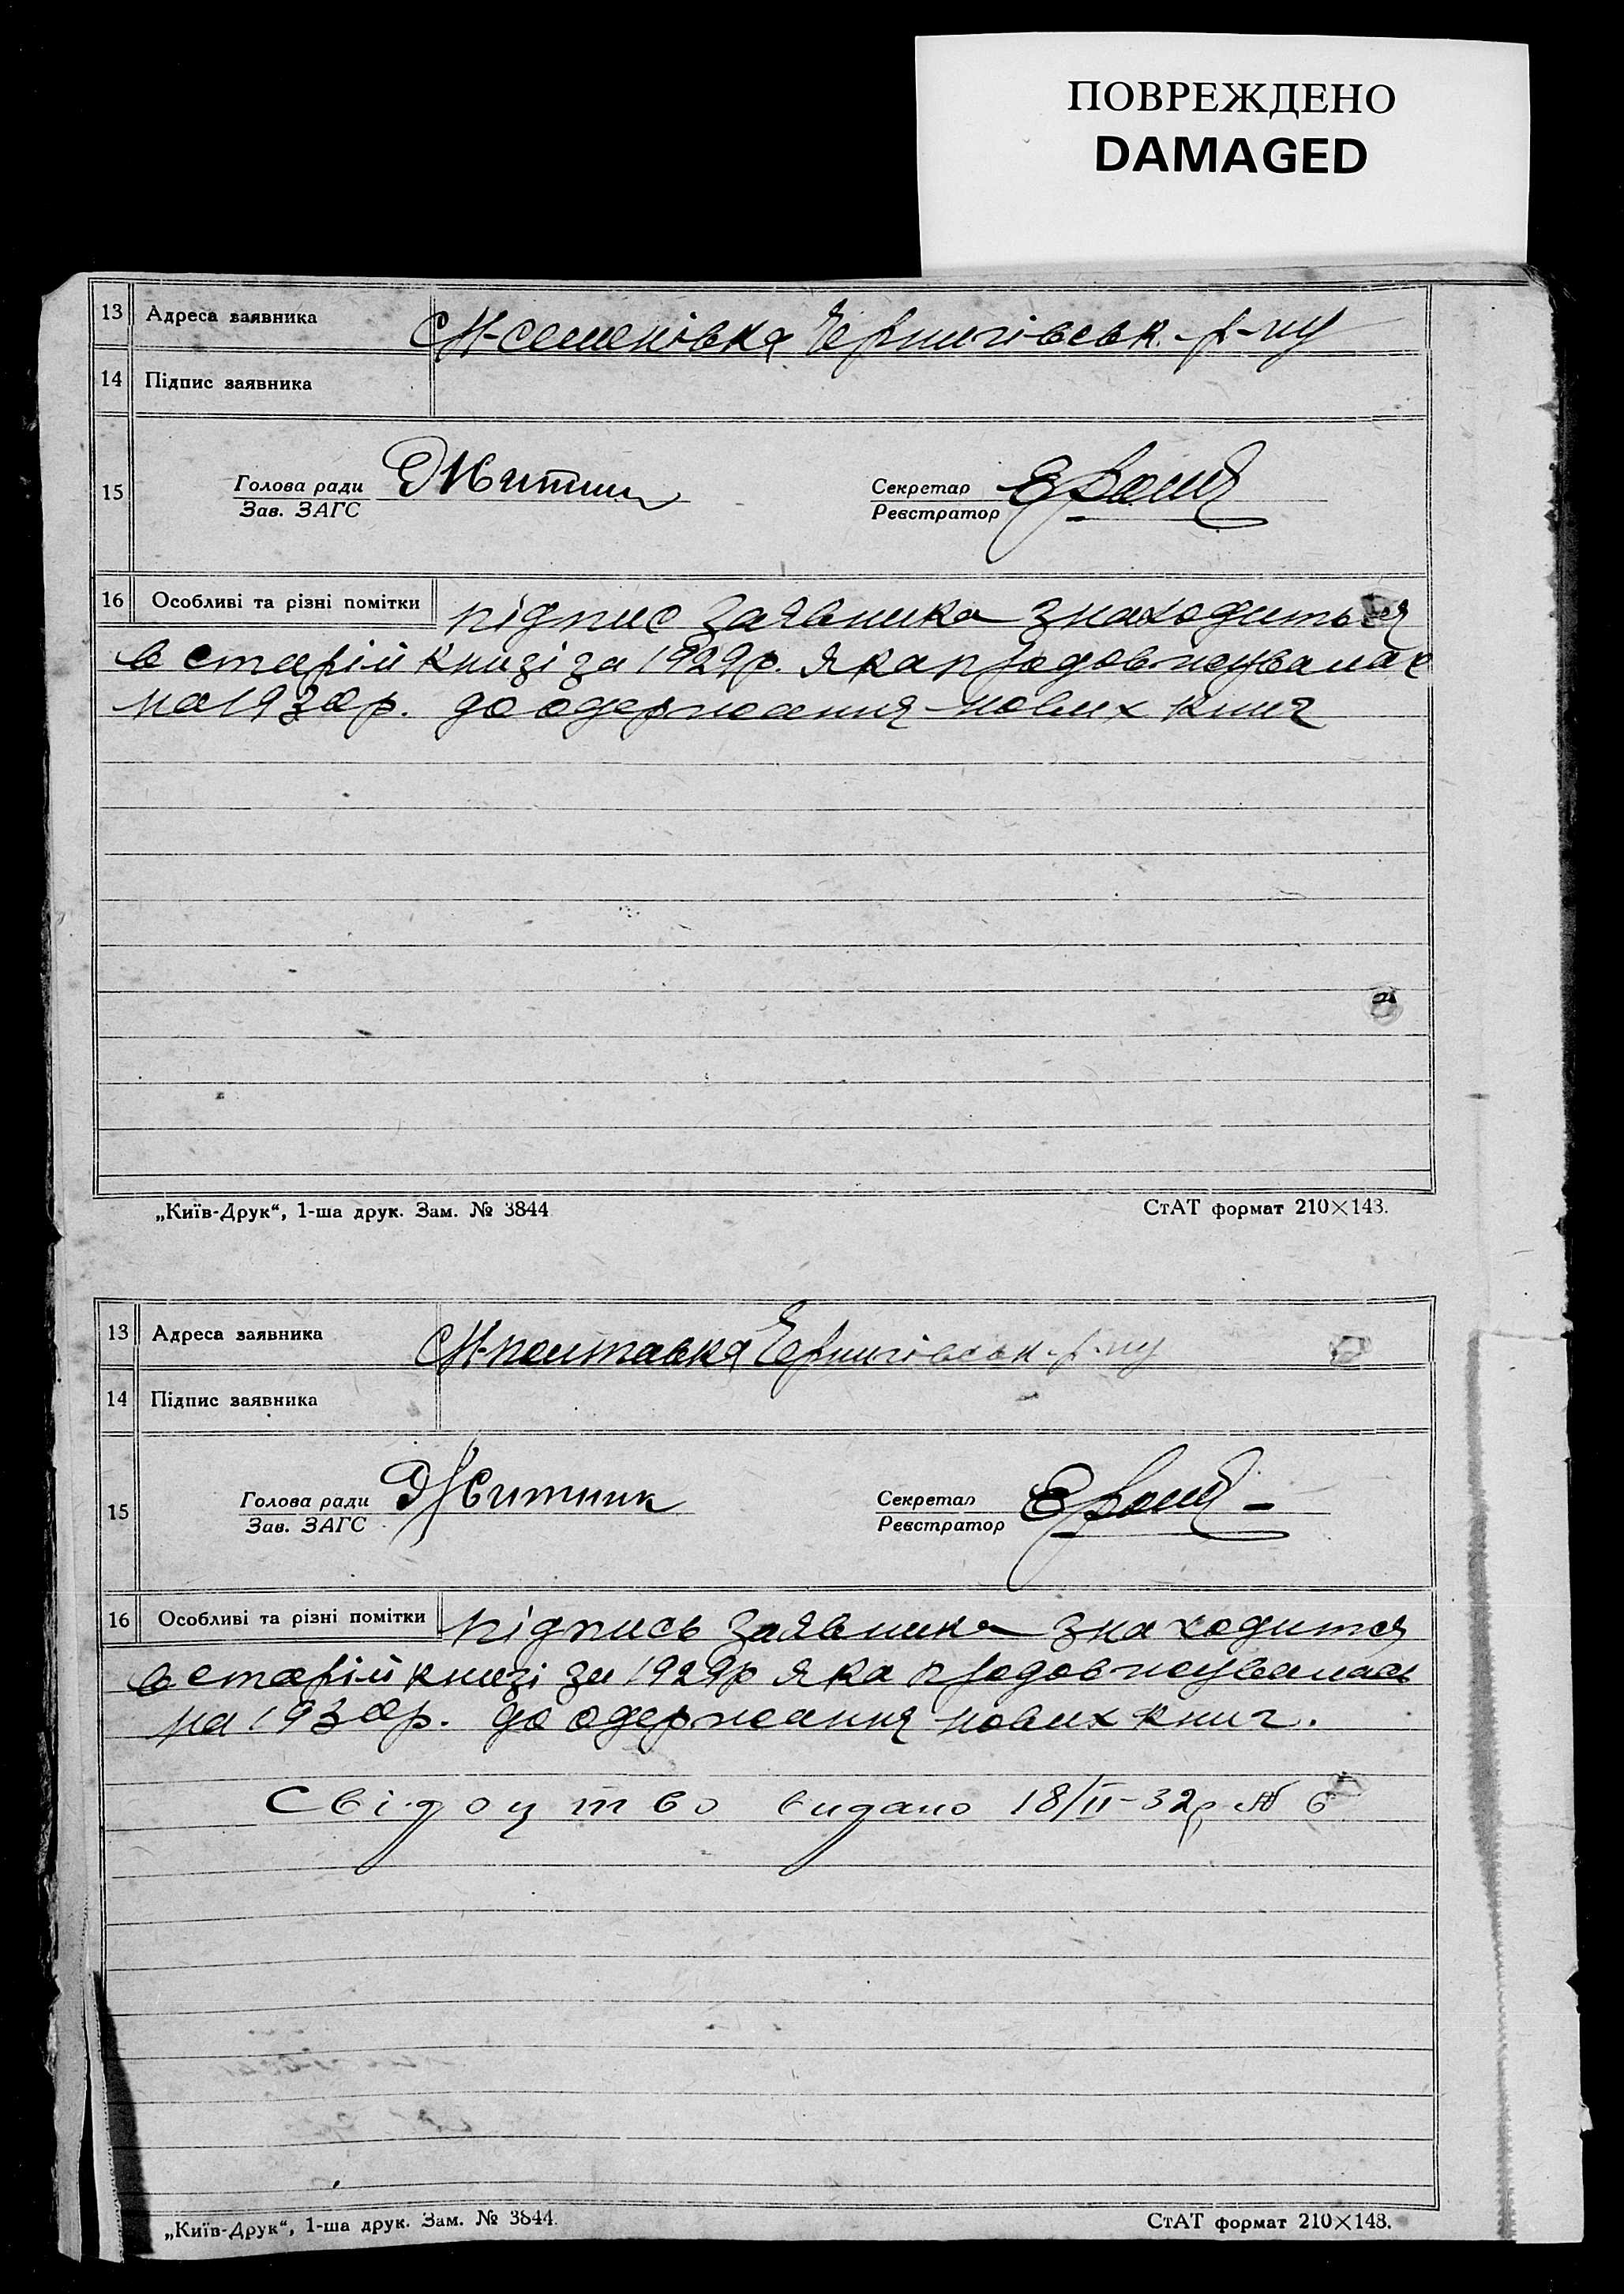 ПОВРЕЖДЕНО
DAMAGED
13 Адреса заявника с М-семенівка Чернигівськ. р-ну
14 Підпис заявника
15 Голова ради Житник Секретар
Зав. ЗАГС Реєстратор
16 Особливі та різні помітки підпис заявника знаходиться
в старій книзі за 1929р. яка продовжувалас
на 1930р. до одержання нових книг
„Київ-Друк“, 1-ша друк. Зам. № 3844 СтАТ формат 210×143.
13 Адреса заявника Чернигівськ. р-ну
14 Підпис заявника
15 Голова ради Житник Секретар
Зав. ЗАГС Реєстратор
16 Особливі та різні помітки підпись заявника знаходится
в старій книзі за 1929р яка продовжувалась
на 1930р. до одержання нових книг.
Свідоцтво видано 18/II-32р № 6
„Київ-Друк“, 1-ша друк. Зам. № 3844. СтАТ формат 210×148.